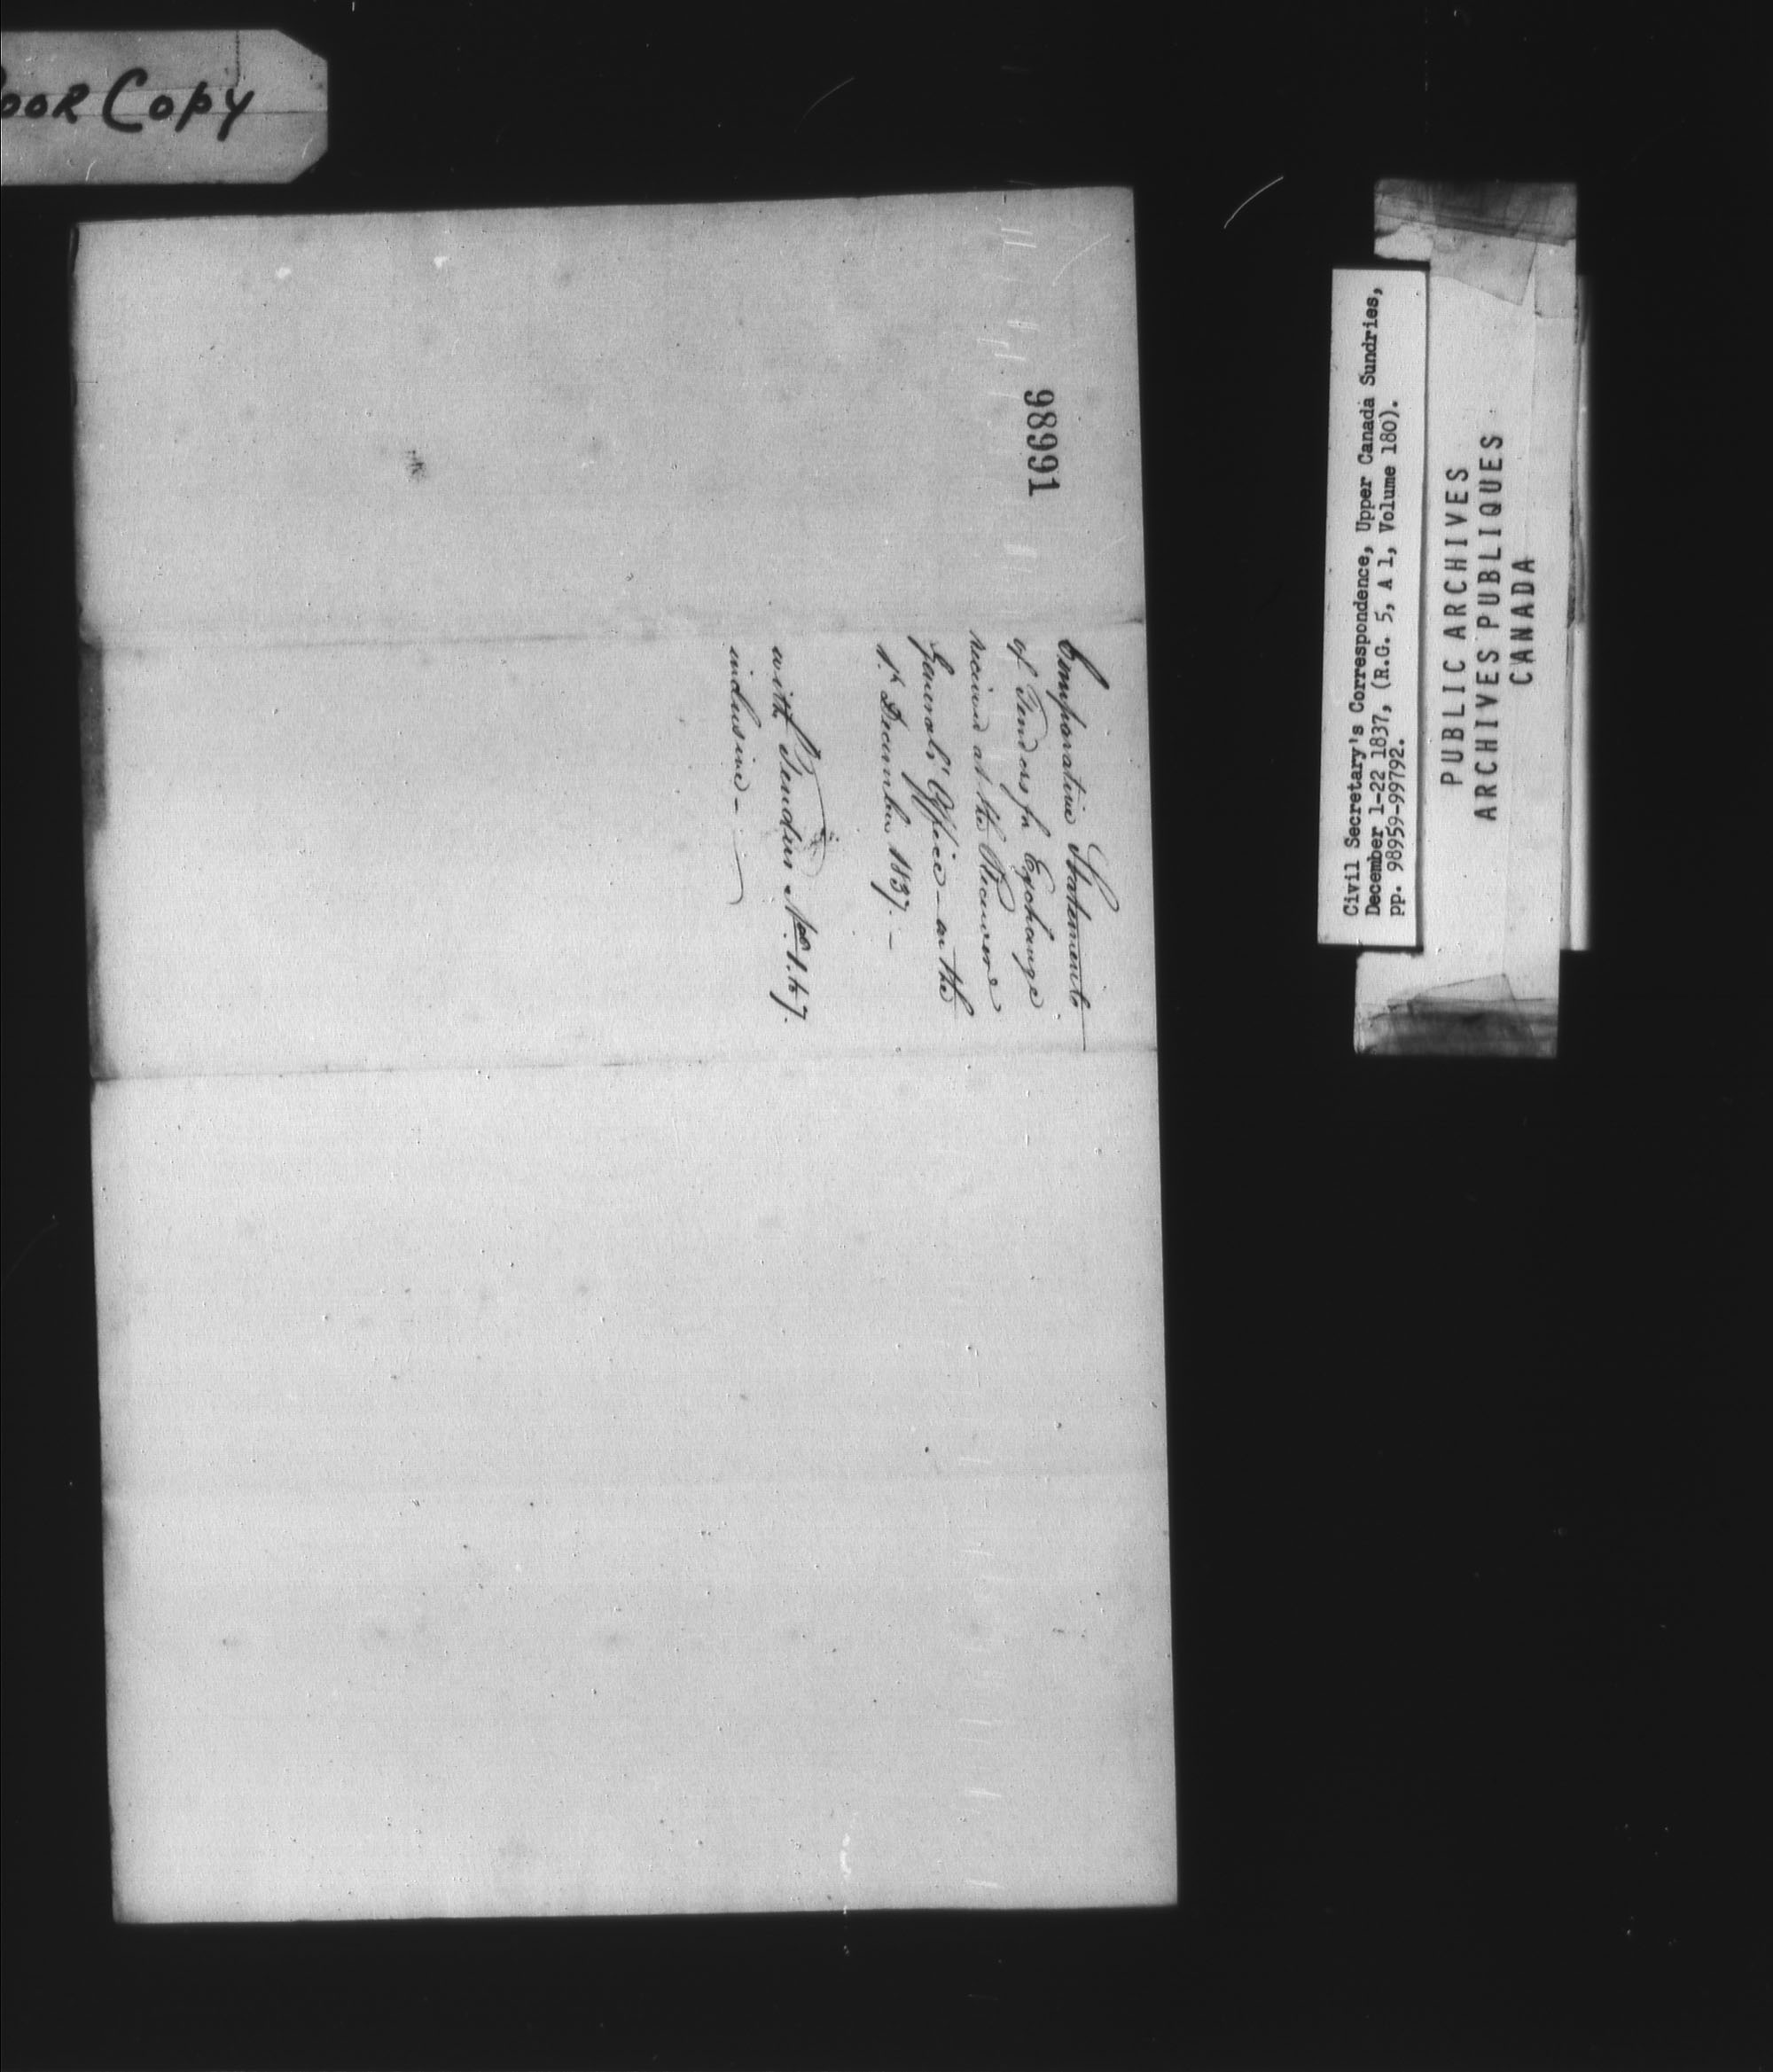 oor Copy
98991
Comparative Statement
of Tenders for Exchange
received at the Receiver
General's Office – on the
1st December 1837. –
with Tenders Nos. 1. to 7.
inclusive –
Civil Secretary's Correspondence, Upper Canada Sundries,
December 1-22 1837, (R.G. 5, A 1, Volume 180).
pp. 98959-99792.
PUBLIC ARCHIVES
ARCHIVES PUBLIQUES
CANADA